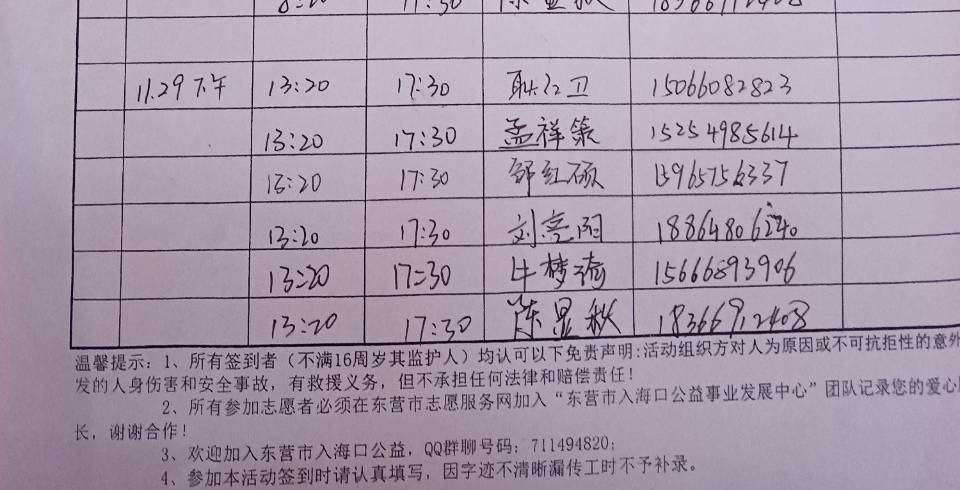 11.29下午 13:20 17:30 耿红卫 15066082823
13:20 17:30 孟祥策 15254985614
13:20 17:30 邹红硕 15965756337
13:20 17:30 刘亮雨 18864806240
13:20 17:30 牛梦琦 15666893906
13:20 17:30 陈显秋 18366912408
温馨提示：1、所有签到者（不满16周岁其监护人）均认可以下免责声明:活动组织方对人为原因或不可抗拒性的意外
发的人身伤害和安全事故，有救援义务，但不承担任何法律和赔偿责任！
2、所有参加志愿者必须在东营市志愿服务网加入“东营市入海口公益事业发展中心”团队记录您的爱心
长，谢谢合作！
3、欢迎加入东营市入海口公益，QQ群聊号码：711494820；
4、参加本活动签到时请认真填写，因字迹不清晰漏传工时不予补录。